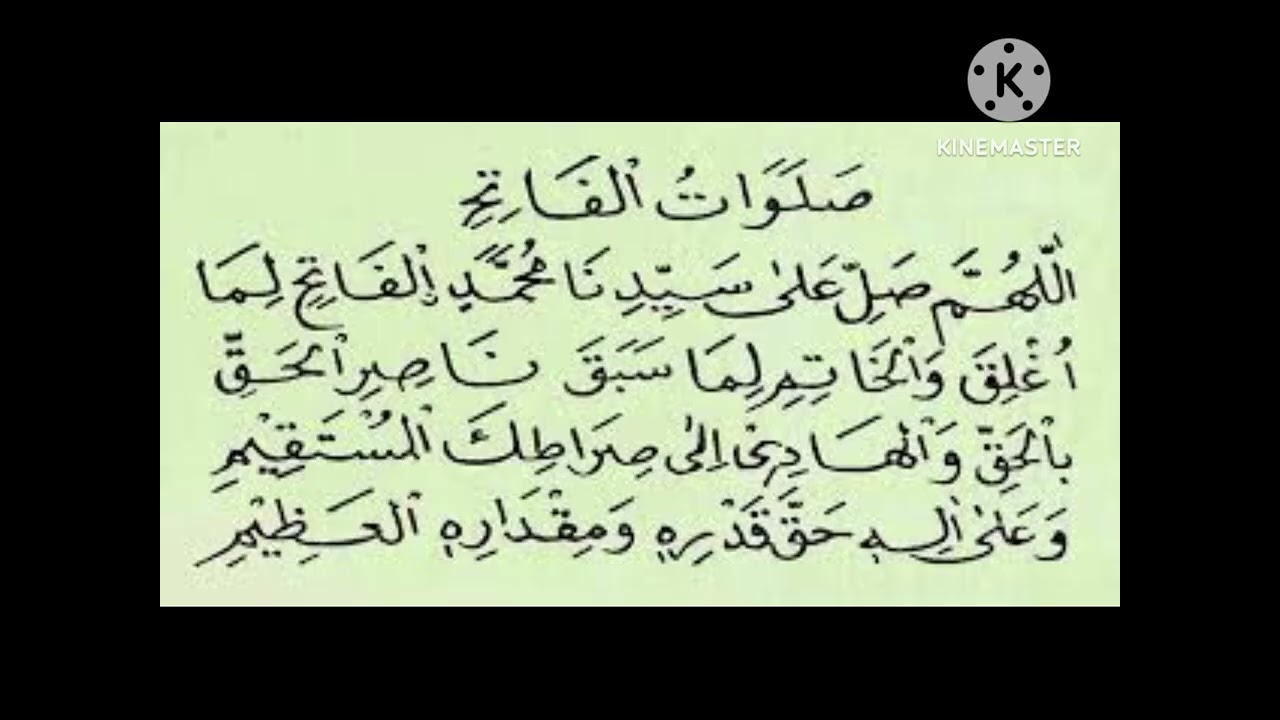 KINEMASTER
صَلَوَاتُ الْفَاتِحِ
اَللّٰهُمَّ صَلِّ عَلٰى سَيِّدِنَا مُحَمَّدٍ اِلْفَاتِحِ لِمَا
اُغْلِقَ وَالْخَاتِمِ لِمَا سَبَقَ نَاصِرِ الْحَقِّ
بِالْحَقِّ وَالْهَادِيْ اِلٰى صِرَاطِكَ الْمُسْتَقِيْمِ
وَعَلٰى اٰلِهٖ حَقَّ قَدْرِهٖ وَمِقْدَارِهِ الْعَظِيْمِ